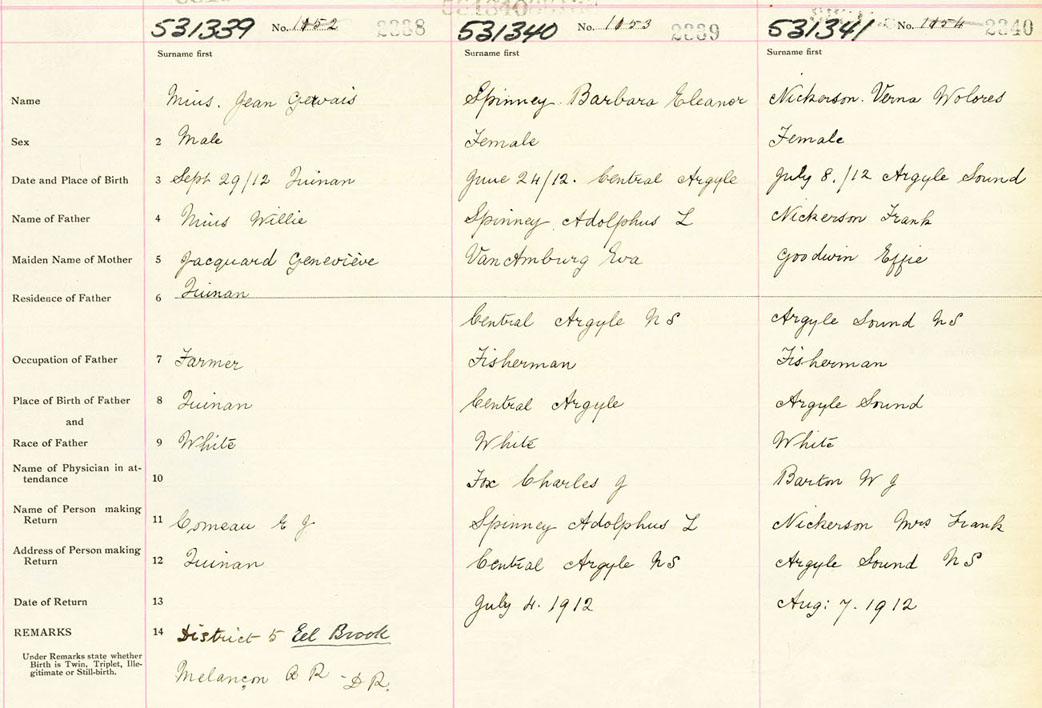 531339 No. 1152 2338 531340 No. 1153 2339 531341 No. 1154 2340
Surname first Surname first Surname first
Name Mius. Jean Gervais Spinney. Barbara Eleanor Nickerson. Verna Wolores
Sex 2 Male Female Female
Date and Place of Birth 3 Sept 29/12 Quinan June 24/12. Central Argyle July 8./12 Argyle Sound
Name of Father 4 Mius Willie Spinney Adolphus L Nickerson Frank
Maiden Name of Mother 5 Jacquard Geneviève VanAmburg Eva Goodwin Effie
Residence of Father 6 Quinan
Central Argyle NS Argyle Sound NS
Occupation of Father 7 Farmer Fisherman Fisherman
Place of Birth of Father 8 Quinan Central Argyle Argyle Sound
and
Race of Father 9 White White White
Name of Physician in at-
tendance 10 Fox Charles J Barton W J
Name of Person making
Return 11 Comeau E J Spinney Adolphus L Nickerson Mrs Frank
Address of Person making
Return 12 Quinan Central Argyle NS Argyle Sound NS
Date of Return 13 July 4. 1912 Aug: 7. 1912
REMARKS 14 District 5 Eel Brook
Under Remarks state whether
Birth is Twin, Triplet, Ille-
gitimate or Still-birth.
Melançon A R - D R.